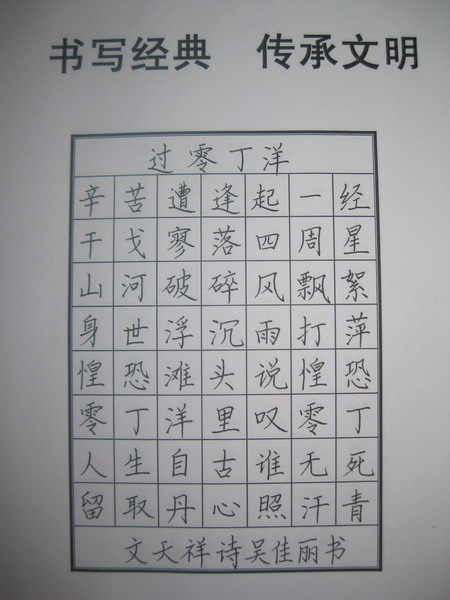 书写经典 传承文明
过零丁洋
辛苦遭逢起一经
干戈寥落四周星
山河破碎风飘絮
身世浮沉雨打萍
惶恐滩头说惶恐
零丁洋里叹零丁
人生自古谁无死
留取丹心照汗青
文天祥诗吴佳丽书